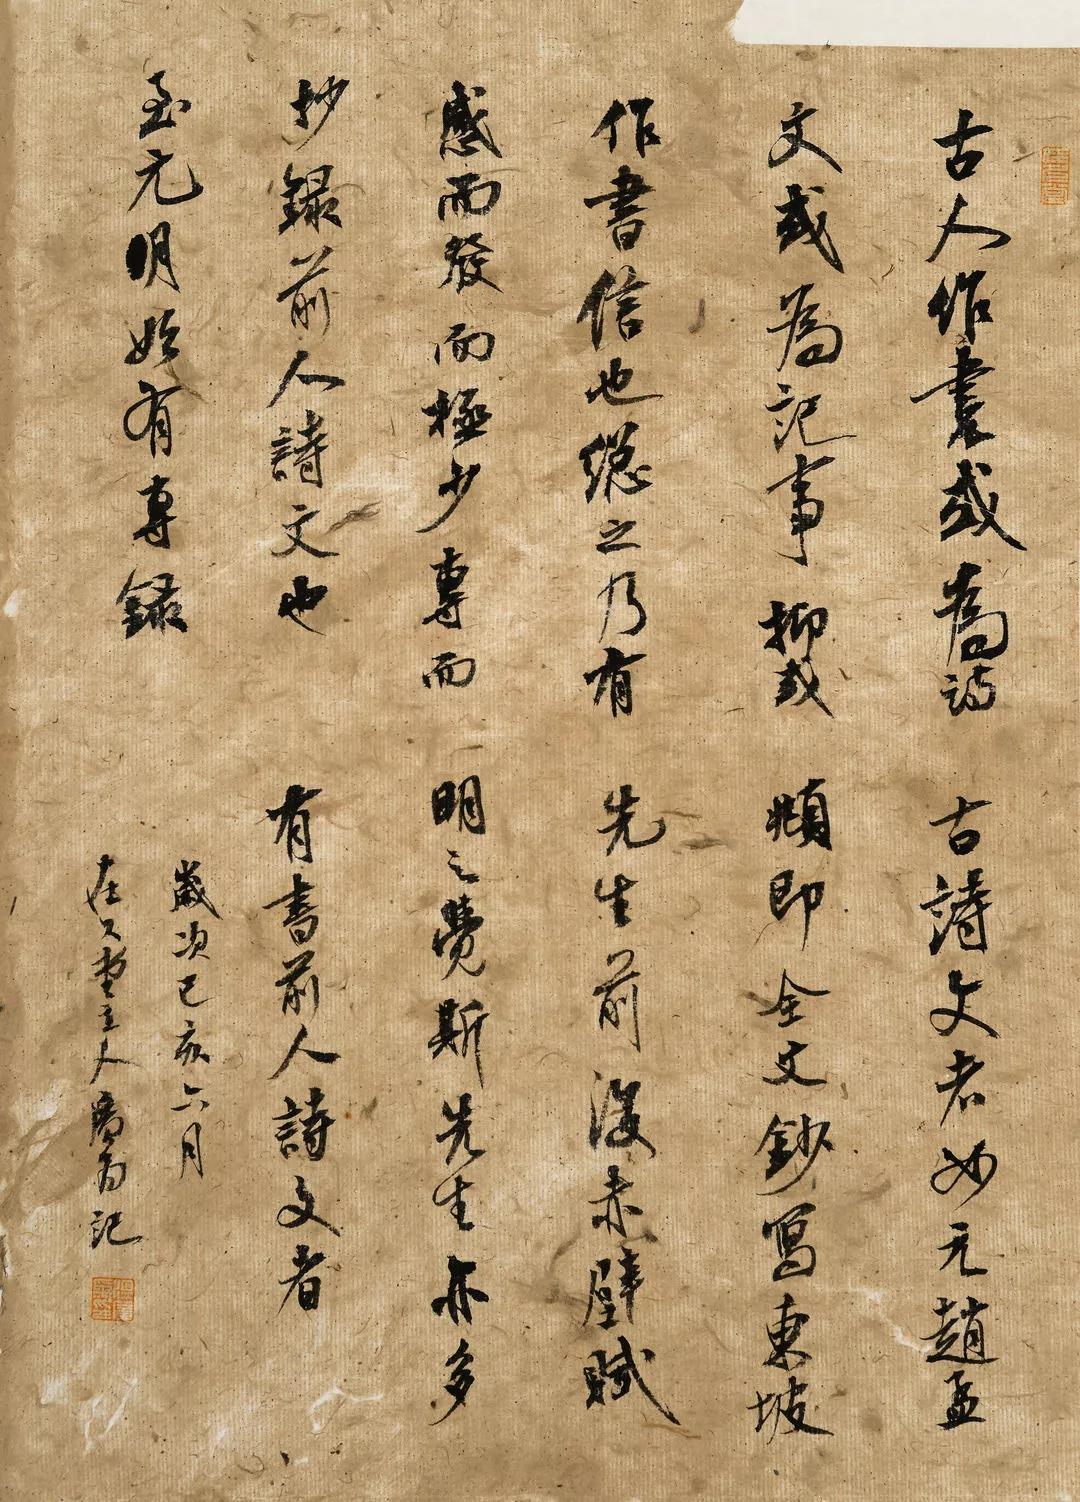 古人作書或為詩
文或為記事抑或
作書信也總之乃有
感而發而極少專而
抄錄前人詩文也
至元明始有專錄
古詩文者如元趙孟
頫即全文鈔寫東坡
先生前後赤壁賦
明之覺斯先生亦多
有書前人詩文者
歲次己亥六月
在久堂主人 記